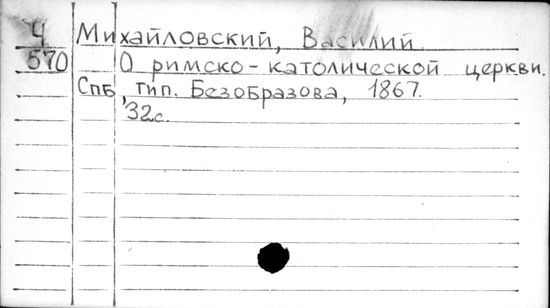 Ч Михайловский, Василий
570 О римско-католической церкви.
СПБ, тип. Безобразова, 1867.
32с.